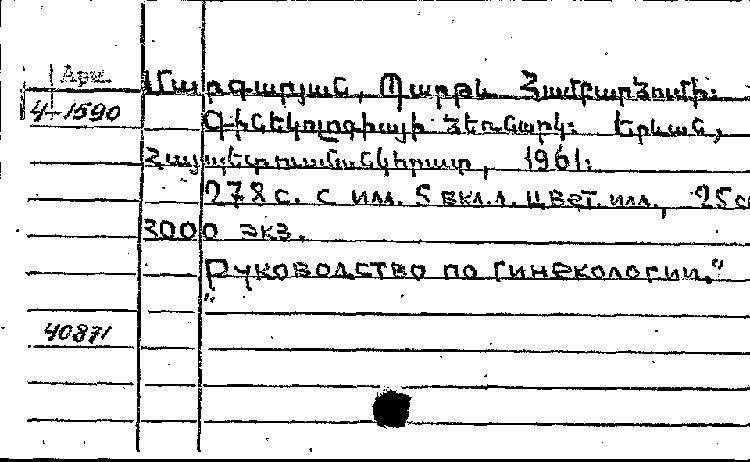 Арм.
4-1590
Մարգարյան, Պարթև Համբարձումի:
Գինեկոլոգիայի ձեռնարկ: Երևան,
Հայպետուսմանկհրատ, 1961:
278 с. с илл. 5 вкл.л. цвет. илл., 25 с
3000 экз.
„Руководство по гинекологии."
40871